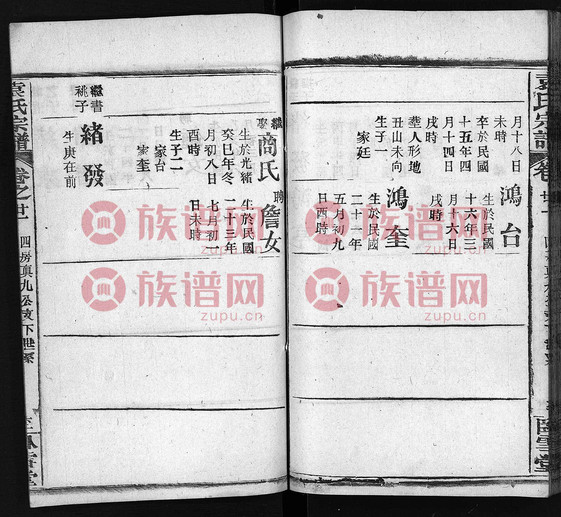 袁氏宗譜
卷廿一
月十八日
未時
卒於民國
十五年四
月十四日
戌時
葬人形地
丑山未向
生子一
家廷
鴻台
生於民國
十六年三
月六日
戌時
鴻奎
生於民國
二十一年
五月初九
日酉時
繼娶
商氏
生於光緒
癸巳年冬
月初八日
酉時
生子二
家台
家奎
聘
詹女
生於民國
二十三年
七月初一
日未時
繼書
祧子
緒發
生庚在前
袁氏宗譜
卷之廿一
四房真九公
下世系
族谱网
zupu.cn
族谱网
zupu.cn
族谱网
zupu.cn
族谱网
zupu.cn